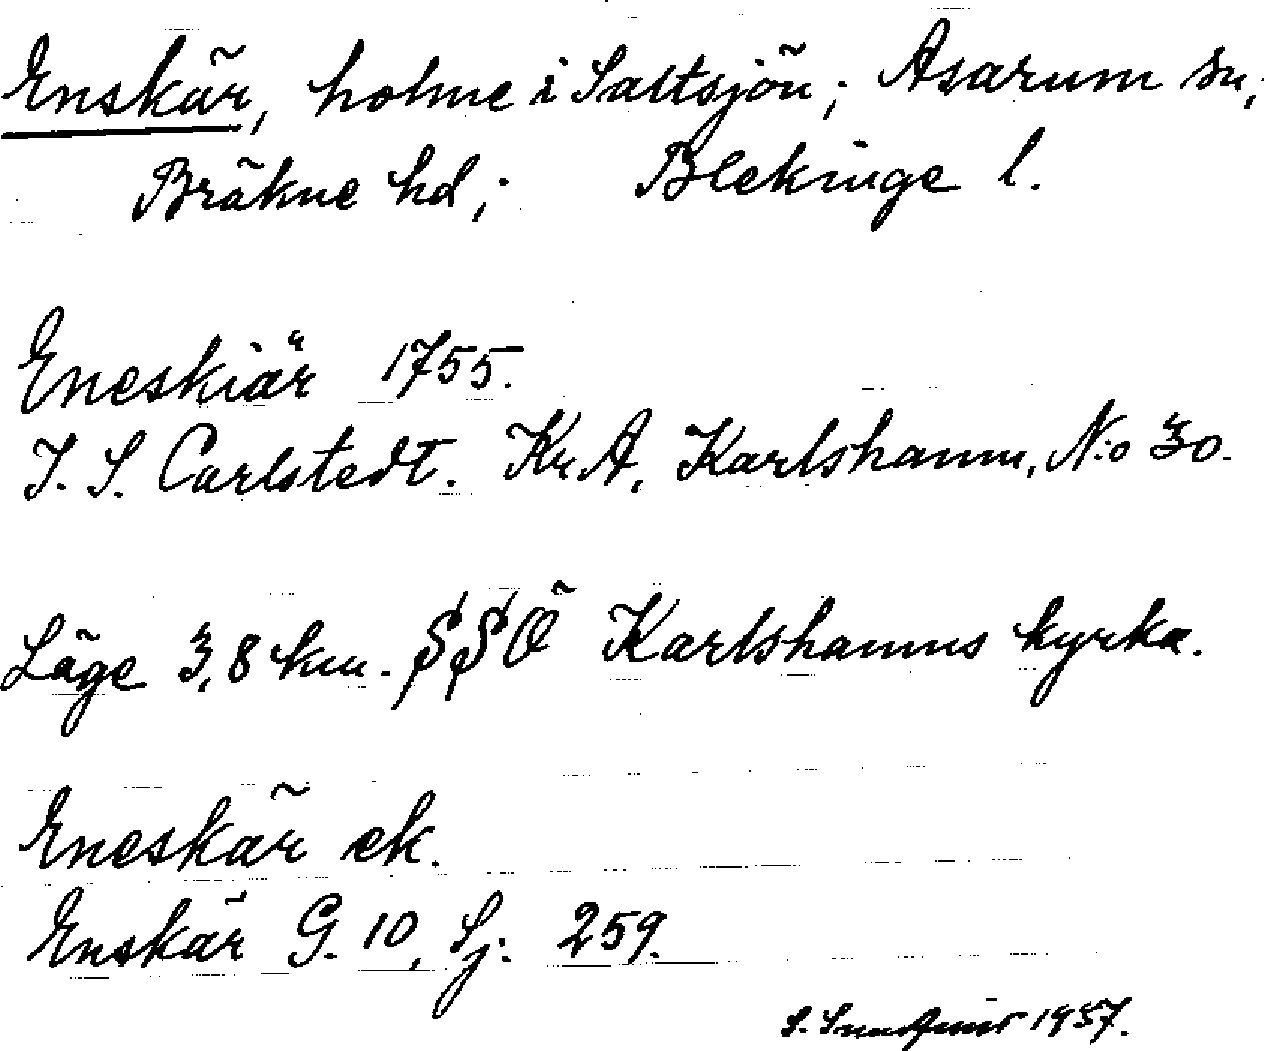 Enskär, holme i Saltsjön; Asarum sn,
Bräkne hd; Blekinge l.
Eneskiär 1755.
J. S. Carlstedt. Kr. A, Karlshamn, N:o 30.
Läge 3,8 km. SSÖ Karlshamns kyrka.
Eneskär ek.
Enskär G. 10, Sj. 259.
S. 1937.